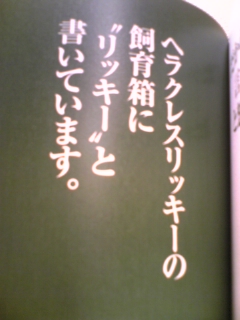 ヘラクレスリッキーの
飼育箱に
〝リッキー〟と
書いています。